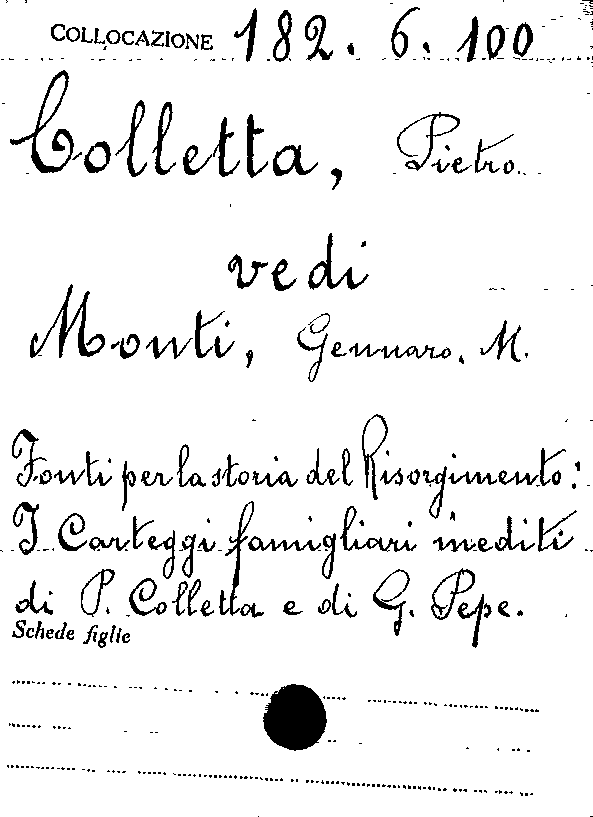 COLLOCAZIONE 182. 6. 100
Colletta, Pietro.
vedi
Monti, Gennaro. M.
Fonti per la storia del Risorgimento:
I Carteggi famigliari inediti
di P. Colletta e di G. Pepe.
Schede figlie